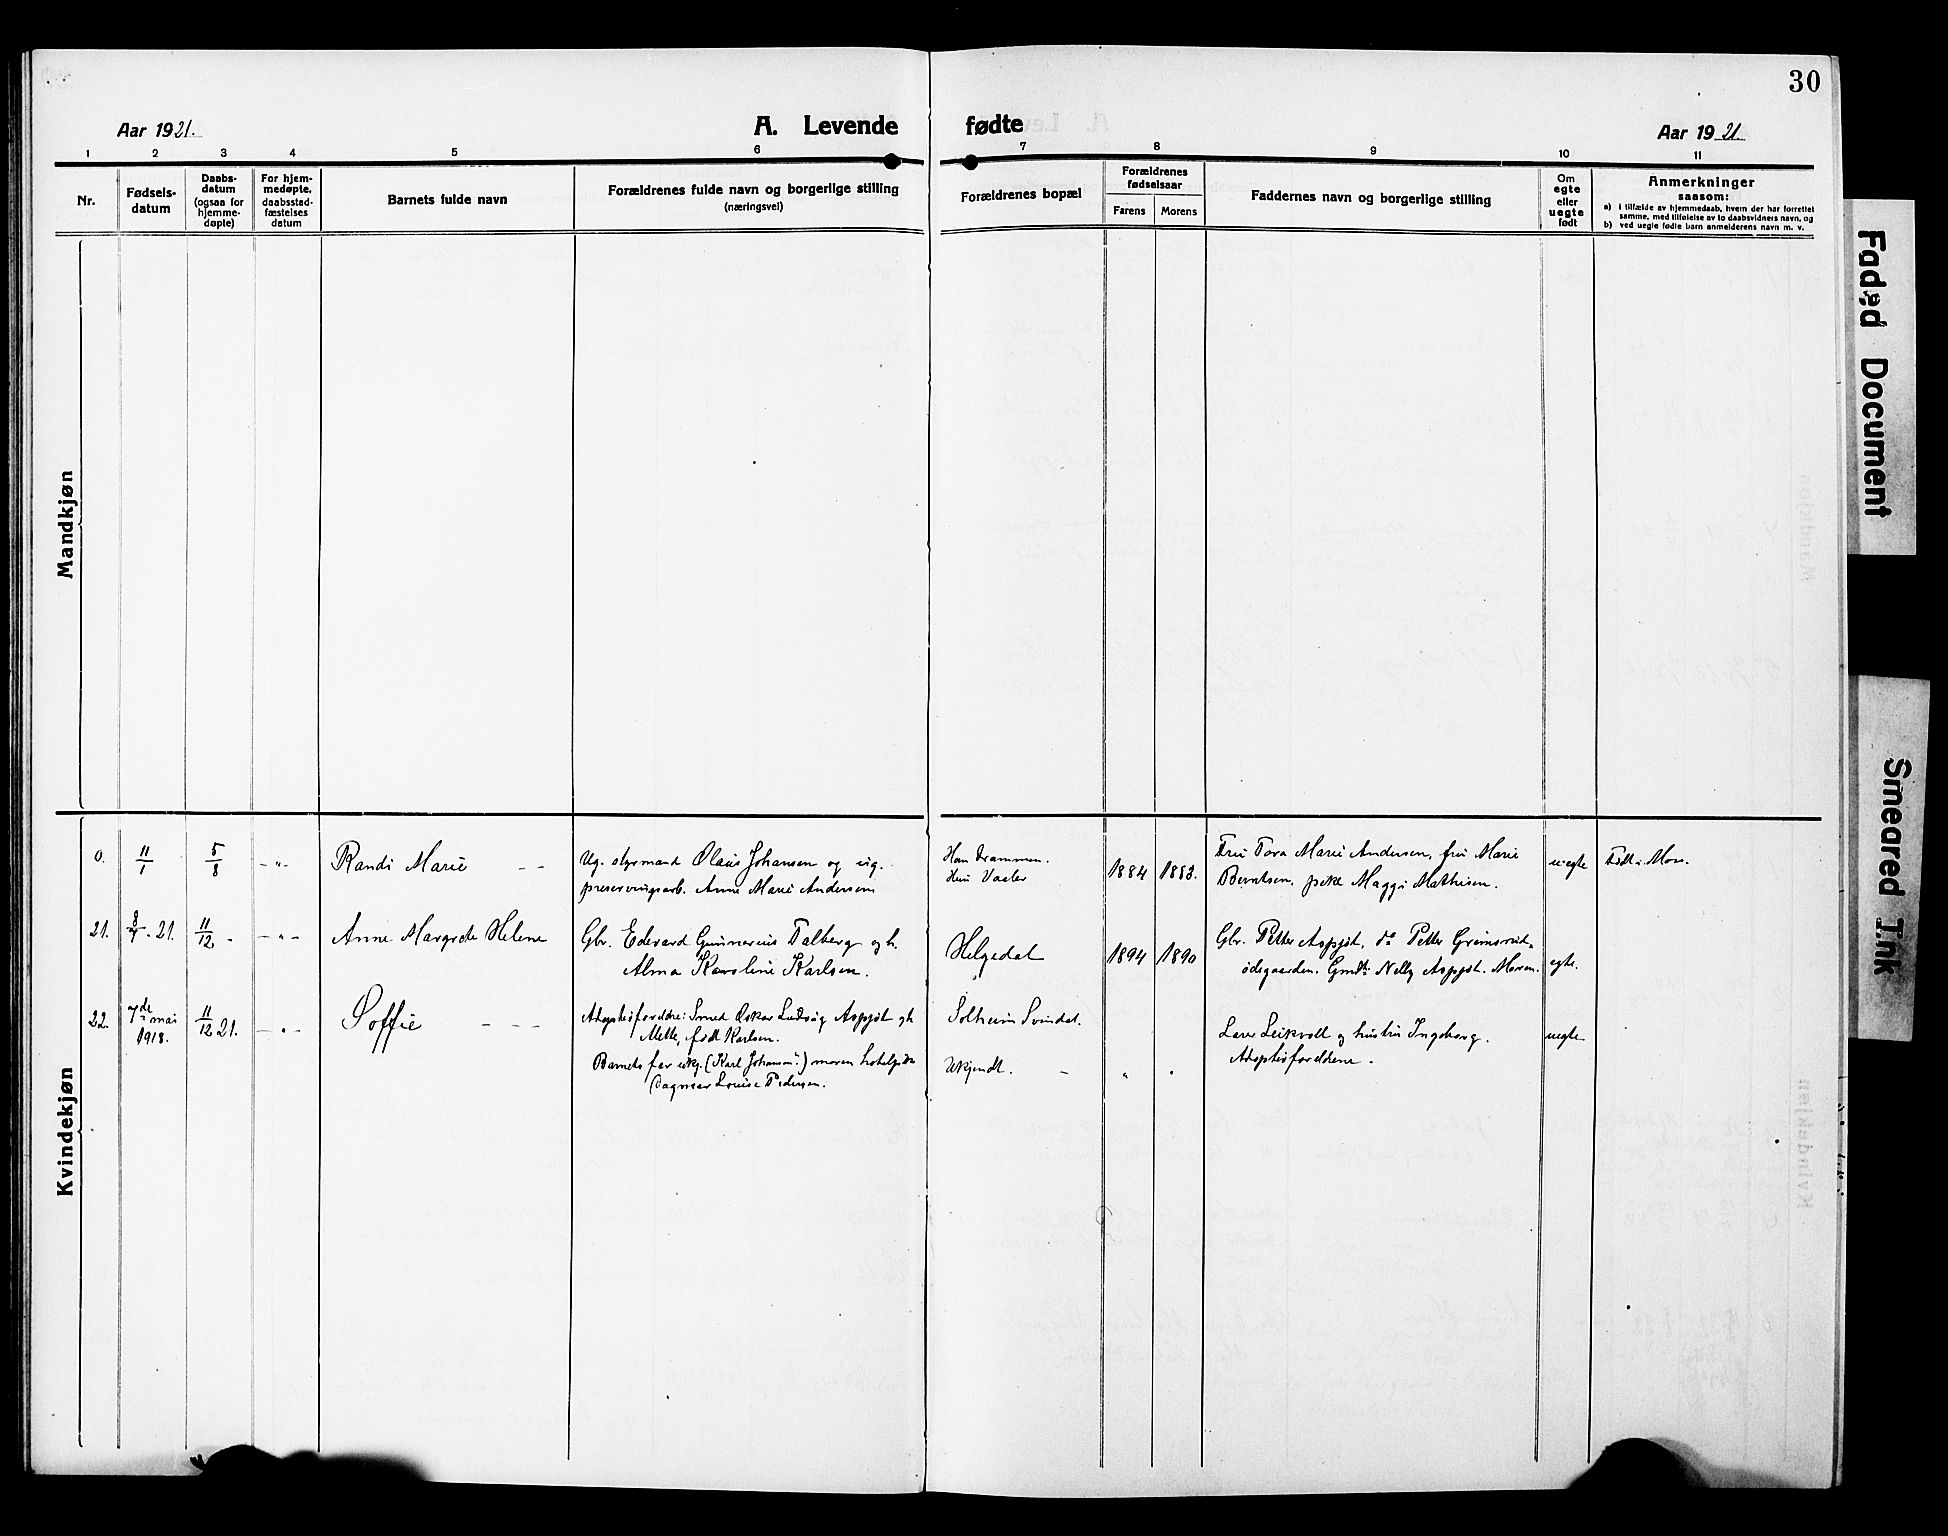 30
Aar 1921.
A. Levende
fødte
Aar 1921.
1 2 3 4 5 6 7 8 9 10 11
Nr.
Fødsels-
datum
Daabs-
datum
(ogsaa for
hjemme-
døpte)
For hjem-
medøpte,
daabsstad-
fæstelses
datum
Barnets fulde navn
Forældrenes fulde navn og borgerlige stilling
(næringsvei)
Forældrenes bopæl
Forældrenes
fødselsaar
Farens Morens
Faddernes navn og borgerlige stilling
Om
egte
eller
uegte
født
Anmerkninger
saasom:
a) i tilfælde av hjemmedaab, hvem der har forrettet
samme, med tilføielse av to daabsvidners navn, og
b) ved uegte fødte barn anmelderens navn m. v.
Mandkjøn
Kvindekjøn
0. 11/1 5/8 - " - Randi Marie - -
Ug. styrmand Olaus Johansen og ug.
preserveringsarb. Anne Marie Andersen
Han Drammen.
Hun Vaaler
1884 1883.
Fru Tora Marie Andersen, fru Marie
Berntsen, pike Maggi Mathisen.
uegte
Født i Mon.
21. 8/7 . 21. 11/12 - - " - Anne Margrete Helene
Gbr. Edevard Gunnerius Talberg og h.
Alma Karoline Karlsen.
Helgedal
1894 1890
Gbr. Petter Aspjøt, do Petter Grimsrud-
ødegaarden. Gmdtr Nelly Aspjøt. Moren.
egte.
22. 7de mai
1918.
11/12 21. - " - Soffie - - -
Adoptivforældre: Smed Oskar Ludvig Aspjøt og h.
Mette, født Karlsen.
Barnets far ukj. (Karl Johansen?) moren hotelpike
Dagmar Louise Pedersen.
Solheim Svindal.
Ukjendt. - " "
Lærer Leikvoll og hustru Ingeborg.
Adoptivforældrene.
uegte
Faded Document
Smeared Ink